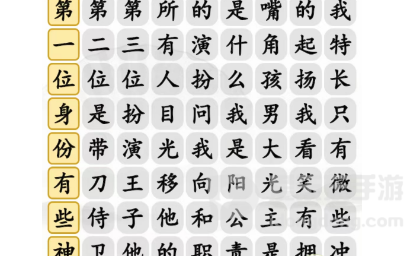 第第第所的是嘴的我
一二三有演什角起特
位位位人扮么孩扬长
身是扮目问我男我只
份带演光我是大看有
有刀王移向阳光笑微
些侍子他和公主有些
神卫他的职责是拥冲